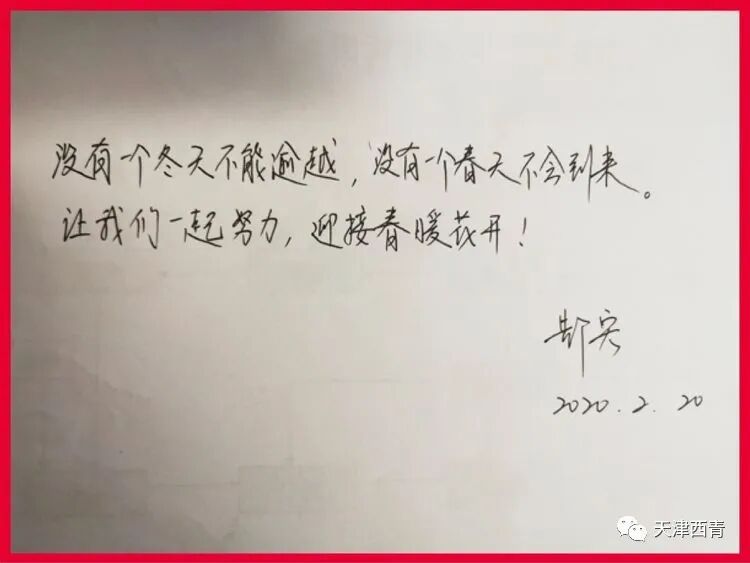 没有一个冬天不能逾越，没有一个春天不会到来。
让我们一起努力，迎接春暖花开！
2020.2.20
天津西青